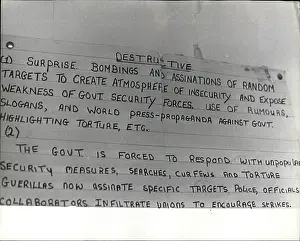 DESTRUCTIVE
(1) SURPRISE BOMBINGS AND ASSINATIONS OF RANDOM
TARGETS TO CREATE ATMOSPHERE OF INSECURITY AND EXPOSE
WEAKNESS OF GOVT SECURITY FORCES. USE OF RUMOURS,
SLOGANS, AND WORLD PRESS-PROPAGANDA AGAINST GOVT.
HIGHLIGHTING TORTURE, ETC.
(2)
THE GOVT IS FORCED TO RESPOND WITH UNPOPULAR
SECURITY MEASURES, SEARCHES, CURFEWS AND TORTURE
GUERILLAS NOW ASSINATE SPECIFIC TARGETS POLICE, OFFICIALS
COLLABORATORS INFILTRATE UNIONS TO ENCOURAGE STRIKES.